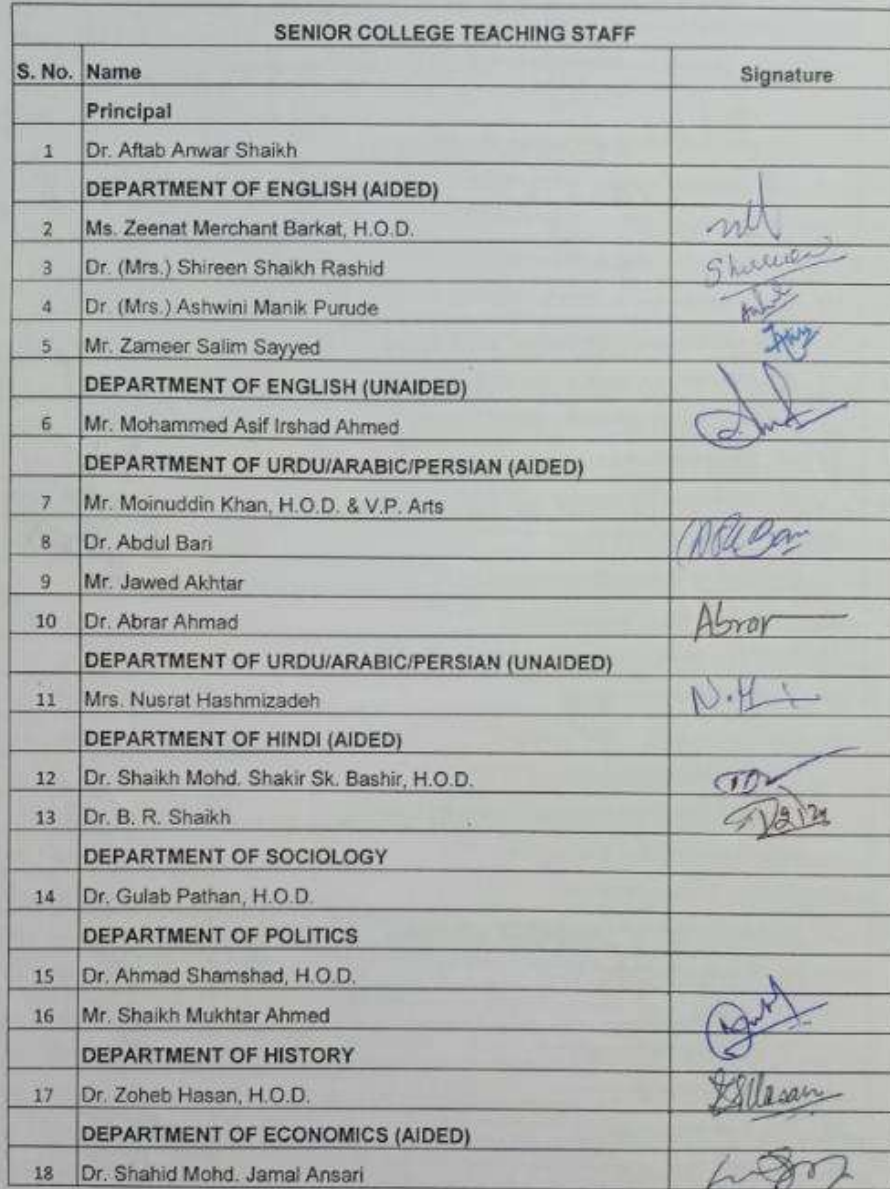 SENIOR COLLEGE TEACHING STAFF
S. No. Name Signature
Principal
1 Dr. Aftab Anwar Shaikh
DEPARTMENT OF ENGLISH (AIDED)
2 Ms. Zeenat Merchant Barkat, H.O.D.
3 Dr. (Mrs.) Shireen Shaikh Rashid
4 Dr. (Mrs.) Ashwini Manik Purude
5 Mr. Zameer Salim Sayyed
DEPARTMENT OF ENGLISH (UNAIDED)
6 Mr. Mohammed Asif Irshad Ahmed
DEPARTMENT OF URDU/ARABIC/PERSIAN (AIDED)
7 Mr. Moinuddin Khan, H.O.D. & V.P. Arts
8 Dr. Abdul Bari
9 Mr. Jawed Akhtar
10 Dr. Abrar Ahmad Abrar
DEPARTMENT OF URDU/ARABIC/PERSIAN (UNAIDED)
11 Mrs. Nusrat Hashmizadeh
DEPARTMENT OF HINDI (AIDED)
12 Dr. Shaikh Mohd. Shakir Sk. Bashir, H.O.D.
13 Dr. B. R. Shaikh
DEPARTMENT OF SOCIOLOGY
14 Dr. Gulab Pathan, H.O.D.
DEPARTMENT OF POLITICS
15 Dr. Ahmad Shamshad, H.O.D.
16 Mr. Shaikh Mukhtar Ahmed
DEPARTMENT OF HISTORY
17 Dr. Zoheb Hasan, H.O.D.
DEPARTMENT OF ECONOMICS (AIDED)
18 Dr. Shahid Mohd. Jamal Ansari